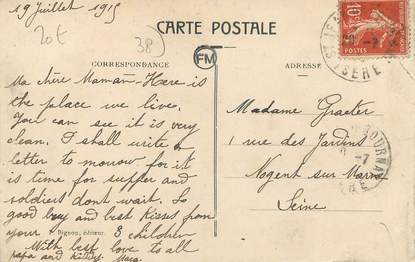 19 Juillet 1915
20f
38
CARTE POSTALE
10
FM
CORRESPONDANCE
ADRESSE
ST JEAN
ISERE
Ma chère Maman - Here is
the place we live.
You can see it is very
clean. I shall write a
letter to morrow for it
is time for supper and
soldiers dont wait. So
good bye and best kisses from
your 3 children
Bignon, éditeur
With best love to all
papa and kitty.
Madame Graeter
1 rue des Jardins
Nogent sur Marne
Seine